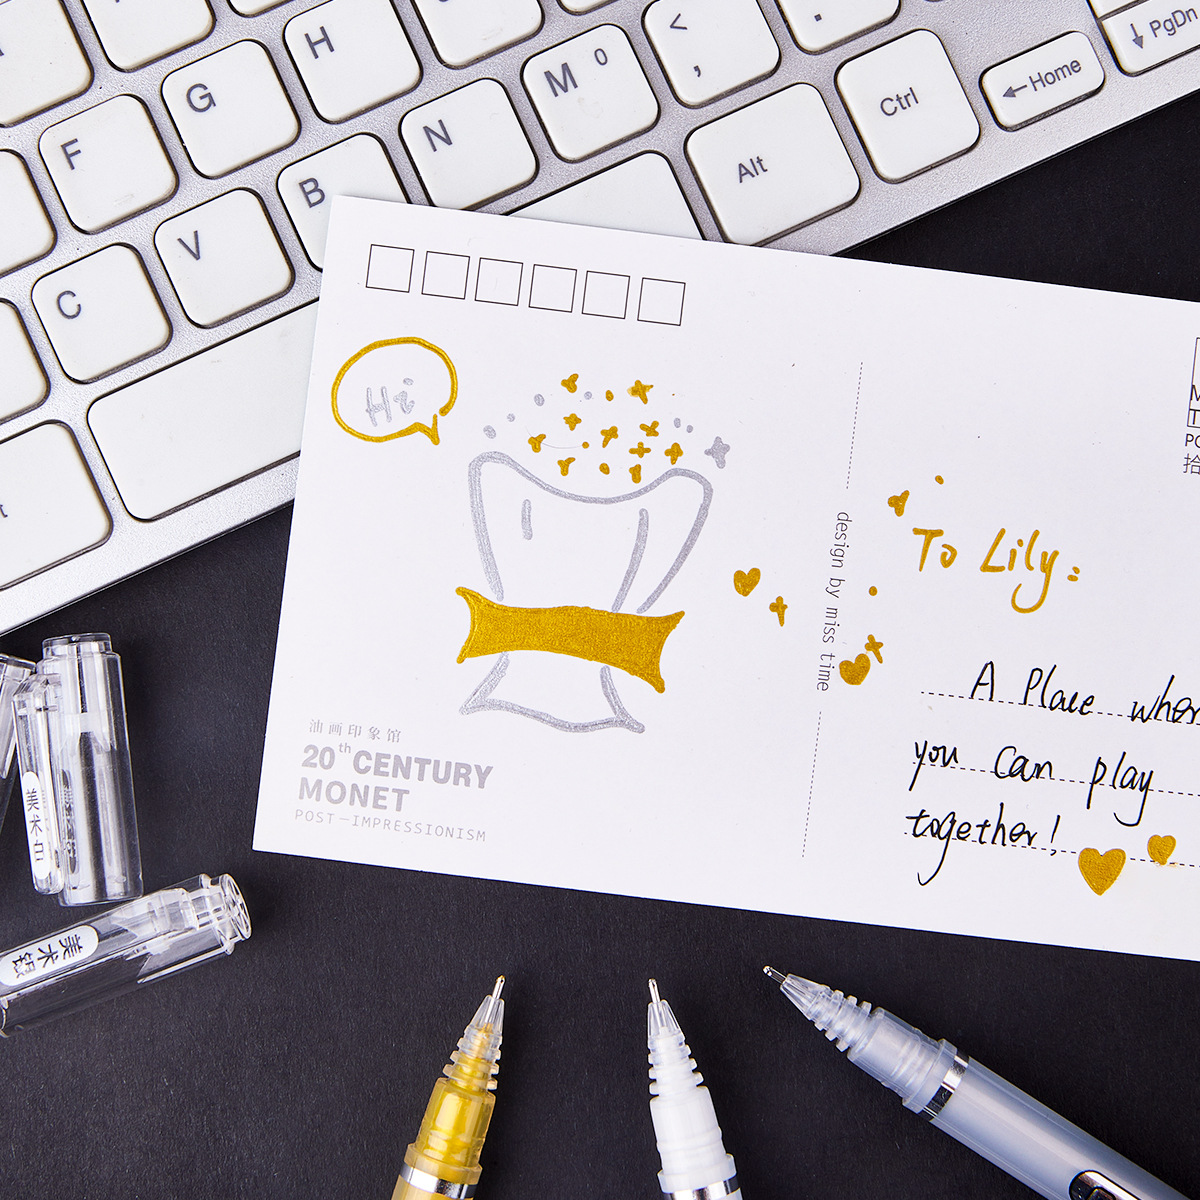 H
G
F
M 0
< ,
.
N
B
V
C
Alt
Ctrl
←Home
↓PgDn
Hi
To Lily:
A Place wher
you can play
together!
design by miss time
油画印象馆
20th CENTURY
MONET
POST-IMPRESSIONISM
拾
美术白
美术银